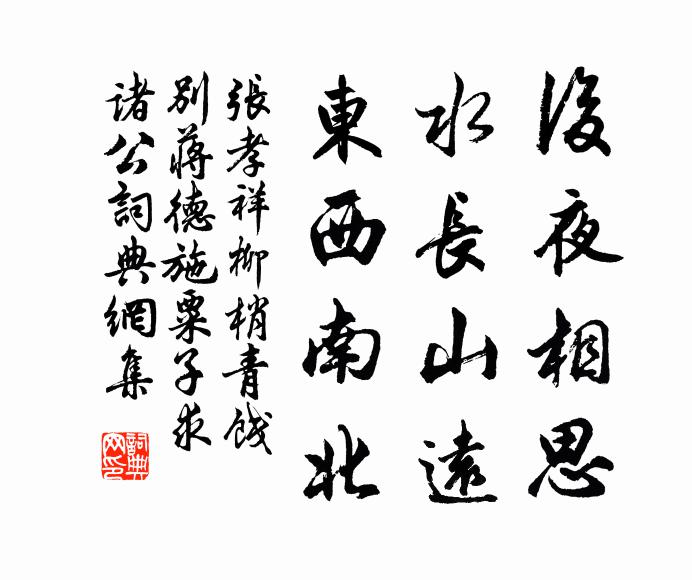 後夜相思
水長山遠
東西南北
張孝祥柳梢青餞
別蔣德施粟子求
諸公詞典網集
詞典網印